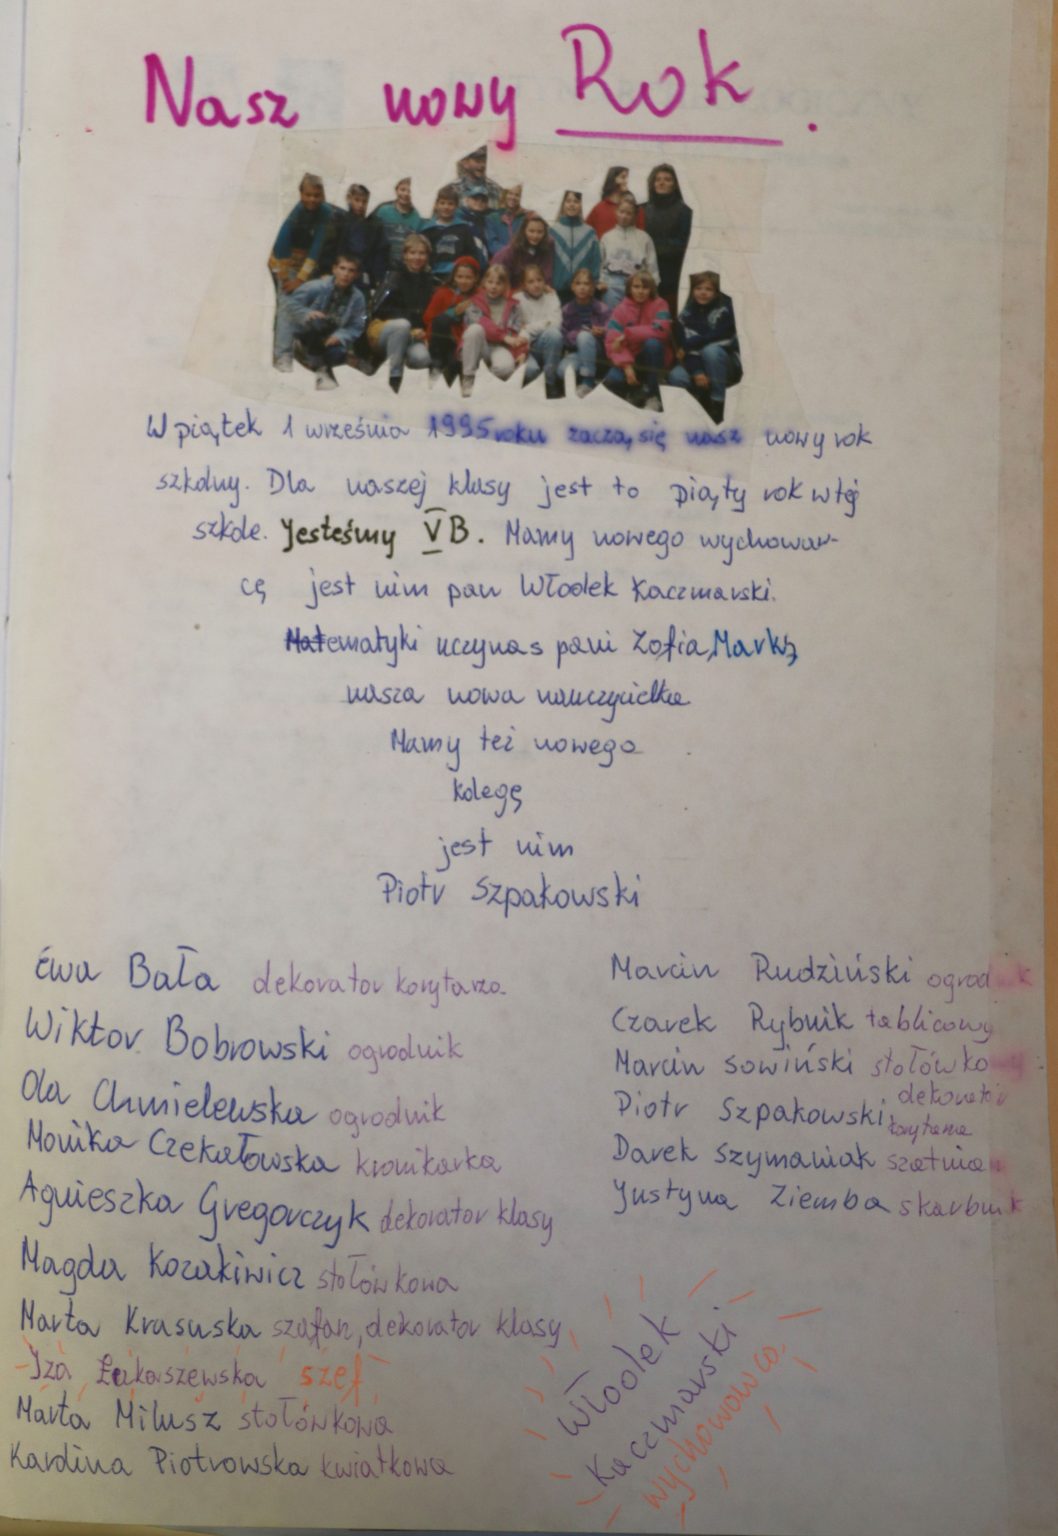 Nasz nowy Rok.
W piątek 1 września 1995 roku zaczą się nasz nowy rok
szkolny. Dla naszej klasy jest to piąty rok w tej
szkole. Jesteśmy V B. Mamy nowego wychowaw-
cę jest nim pan Włodek Kaczmarski.
Matematyki uczy nas pani Zofia Marks,
nasza nowa nauczycielka
Mamy też nowego
kolegę
jest nim
Piotr Szpakowski
Ewa Bała dekorator korytarza.
Wiktor Bobrowski ogrodnik
Ola Chmielewska ogrodnik
Monika Czekałowska kronikarka
Agnieszka Gregorczyk dekorator klasy
Magda Kozakiwicz stołówkowa
Marta Krasuska szafan, dekorator klasy
Iza Łukaszewska szef
Marta Milusz stołówkowa
Karolina Piotrowska kwiatkowa
Marcin Rudziński ogrodnik
Czarek Rybnik tablicowy
Marcin Sowiński stołówkowy
Piotr Szpakowski dekorator
korytarza
Darek Szymaniak
Justyna Ziemba skarbnik
Włodek
Kaczmarski
wychowawca